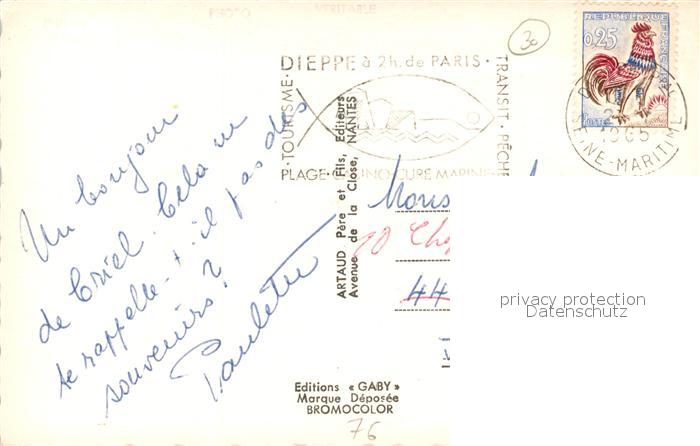 PHOTO VERITABLE
30
DIEPPE à 2h. de PARIS
TOURISME
TRANSIT · PÊCHE
PLAGE · CASINO · CURE MARINE
REPUBLIQUE FRANÇAISE
0,25
POSTES
1965
NE-MARITIME
Un bonjour
de Criel. Cela ne
te rappelle-t-il pas des
souvenirs?
Paulette
ARTAUD Père et Fils, Editeurs
Avenue de la Close, NANTES
Mons
10
44
privacy protection
Datenschutz
Editions « GABY »
Marque Déposée
BROMOCOLOR
76